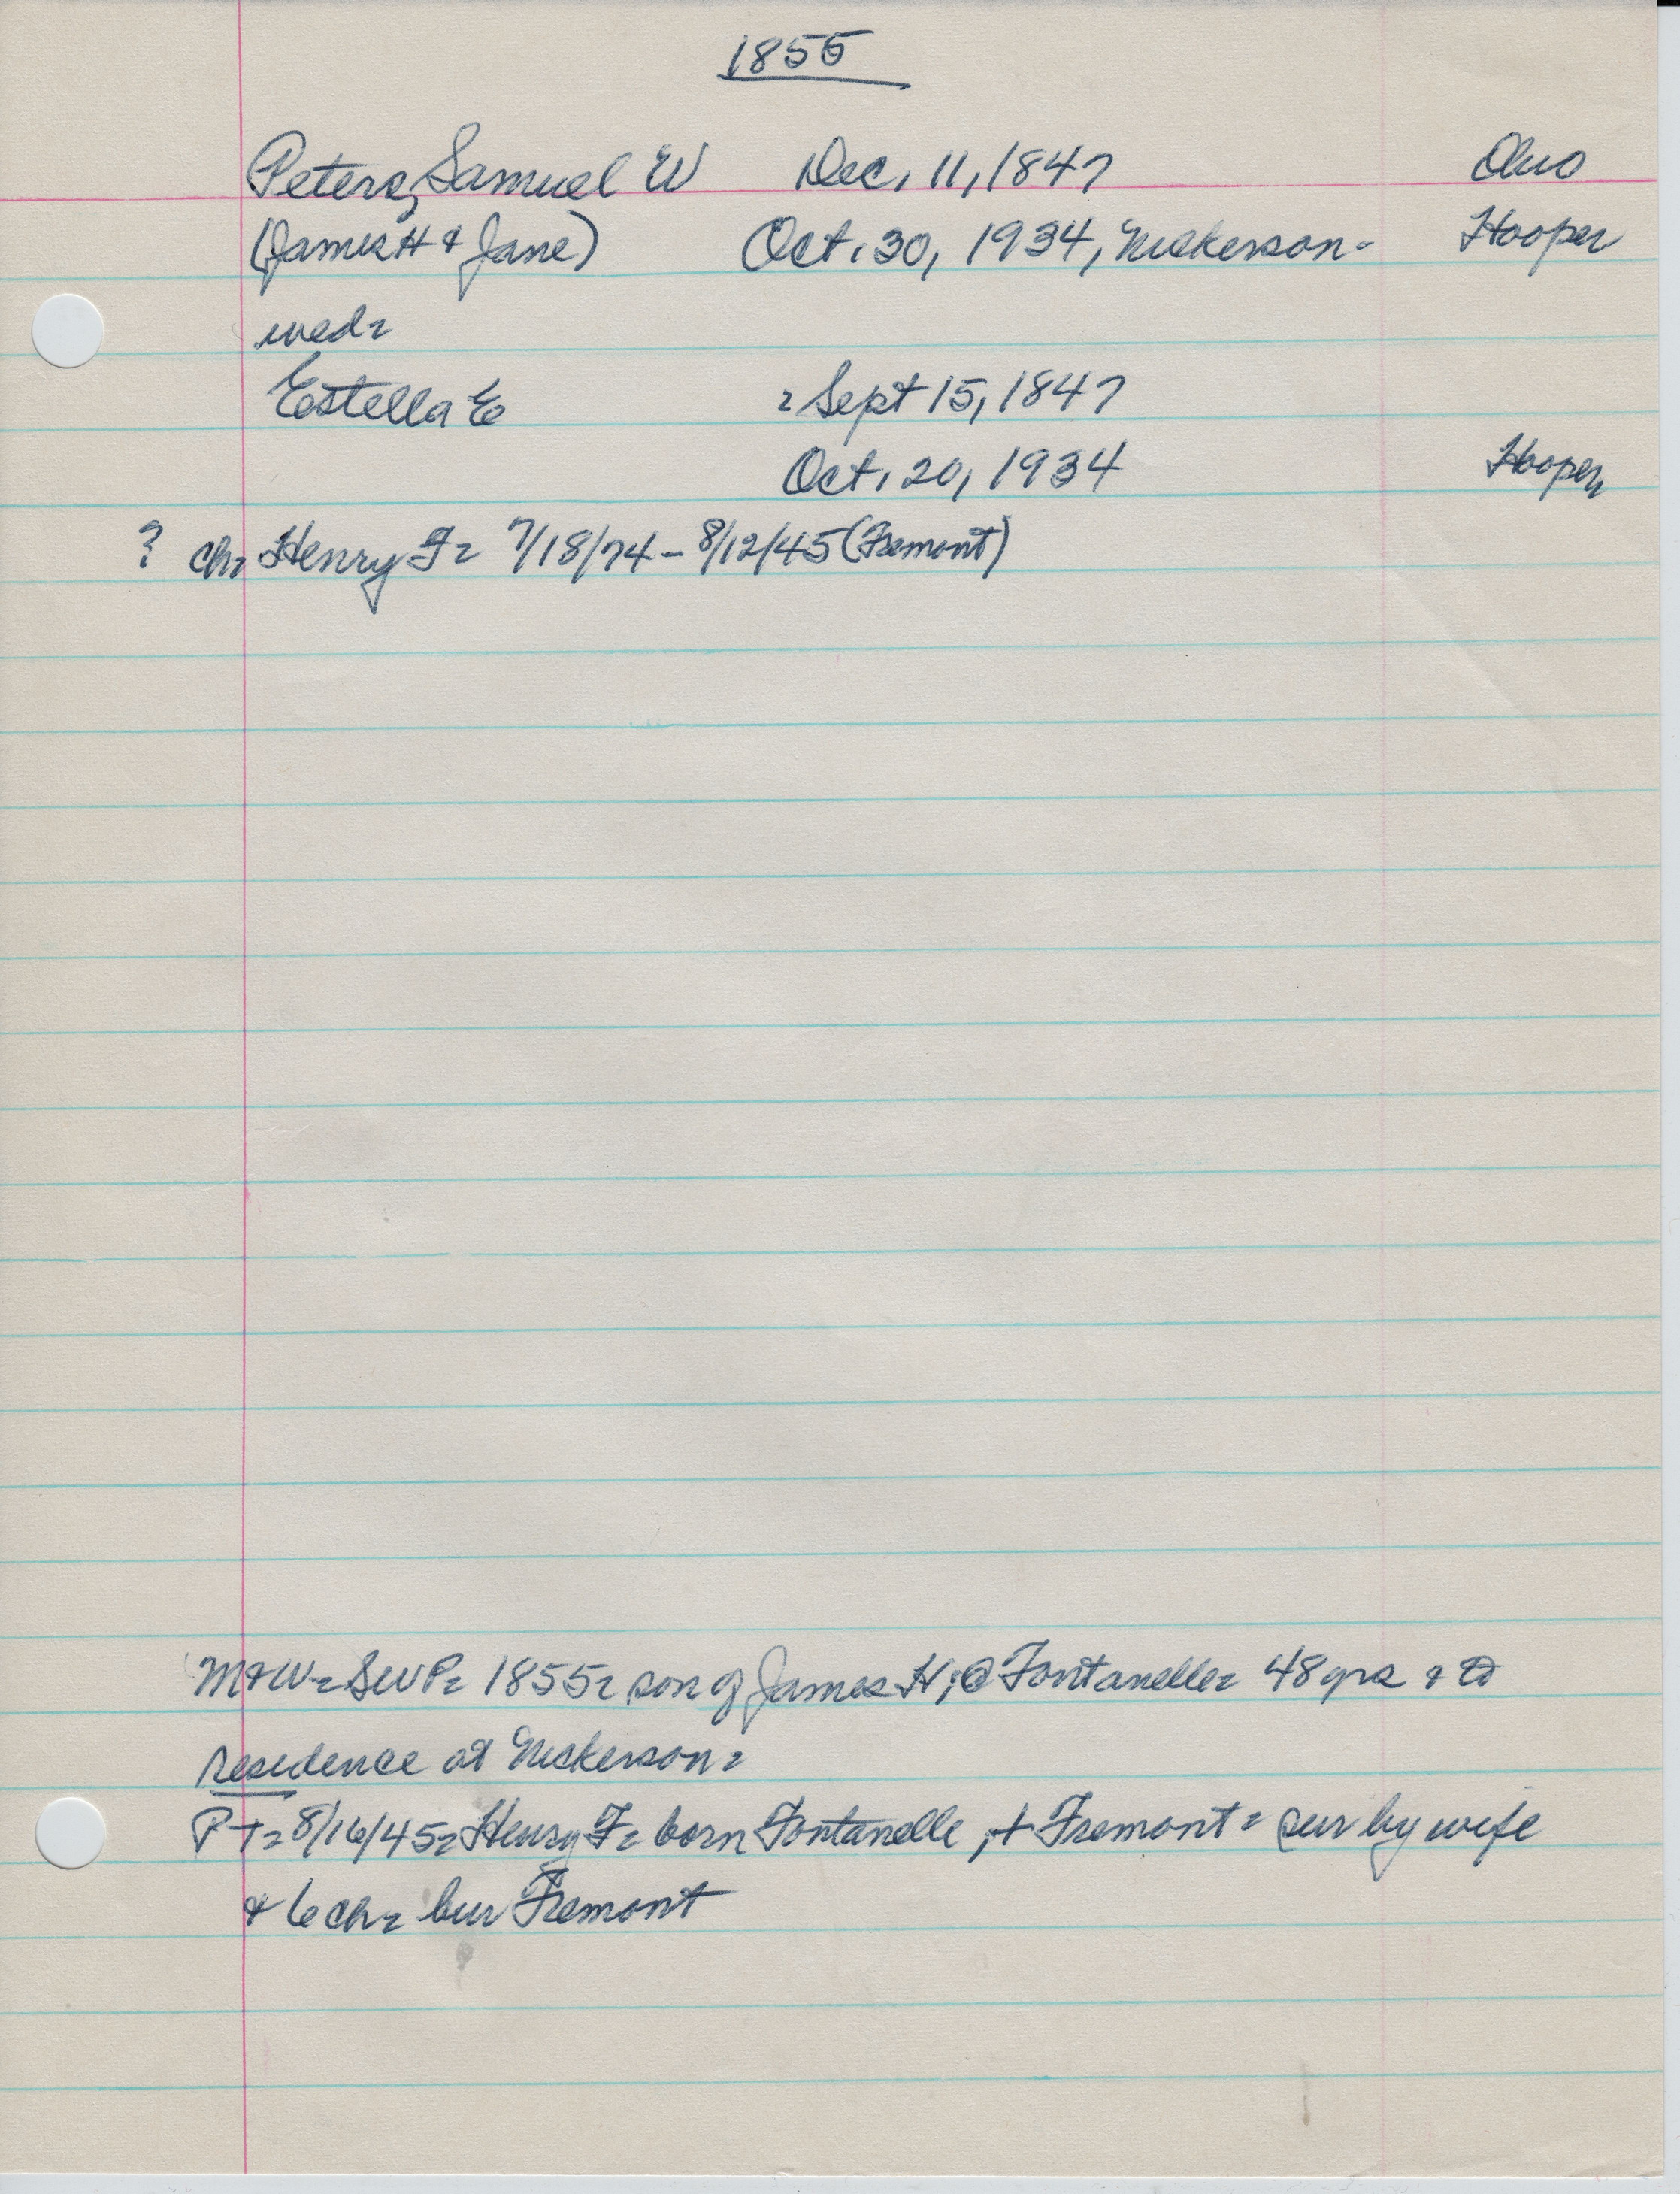 1855
Peters, Samuel W Dec. 11, 1847 Ohio
(James H & Jane) Oct. 30, 1934, Nickerson- Hooper
wed-
Estella E - Sept 15, 1847
Oct. 20, 1934 Hooper
? ch- Henry F- 7/18/74 - 8/12/45 (Fremont)
M&W- SWP- 1855- son of James H; @ Fontanelle- 48 yrs & to
residence at Nickerson-
PT- 8/16/45- Henry F- born Fontanelle, + Fremont- sur by wife
& 6 ch- bur Fremont